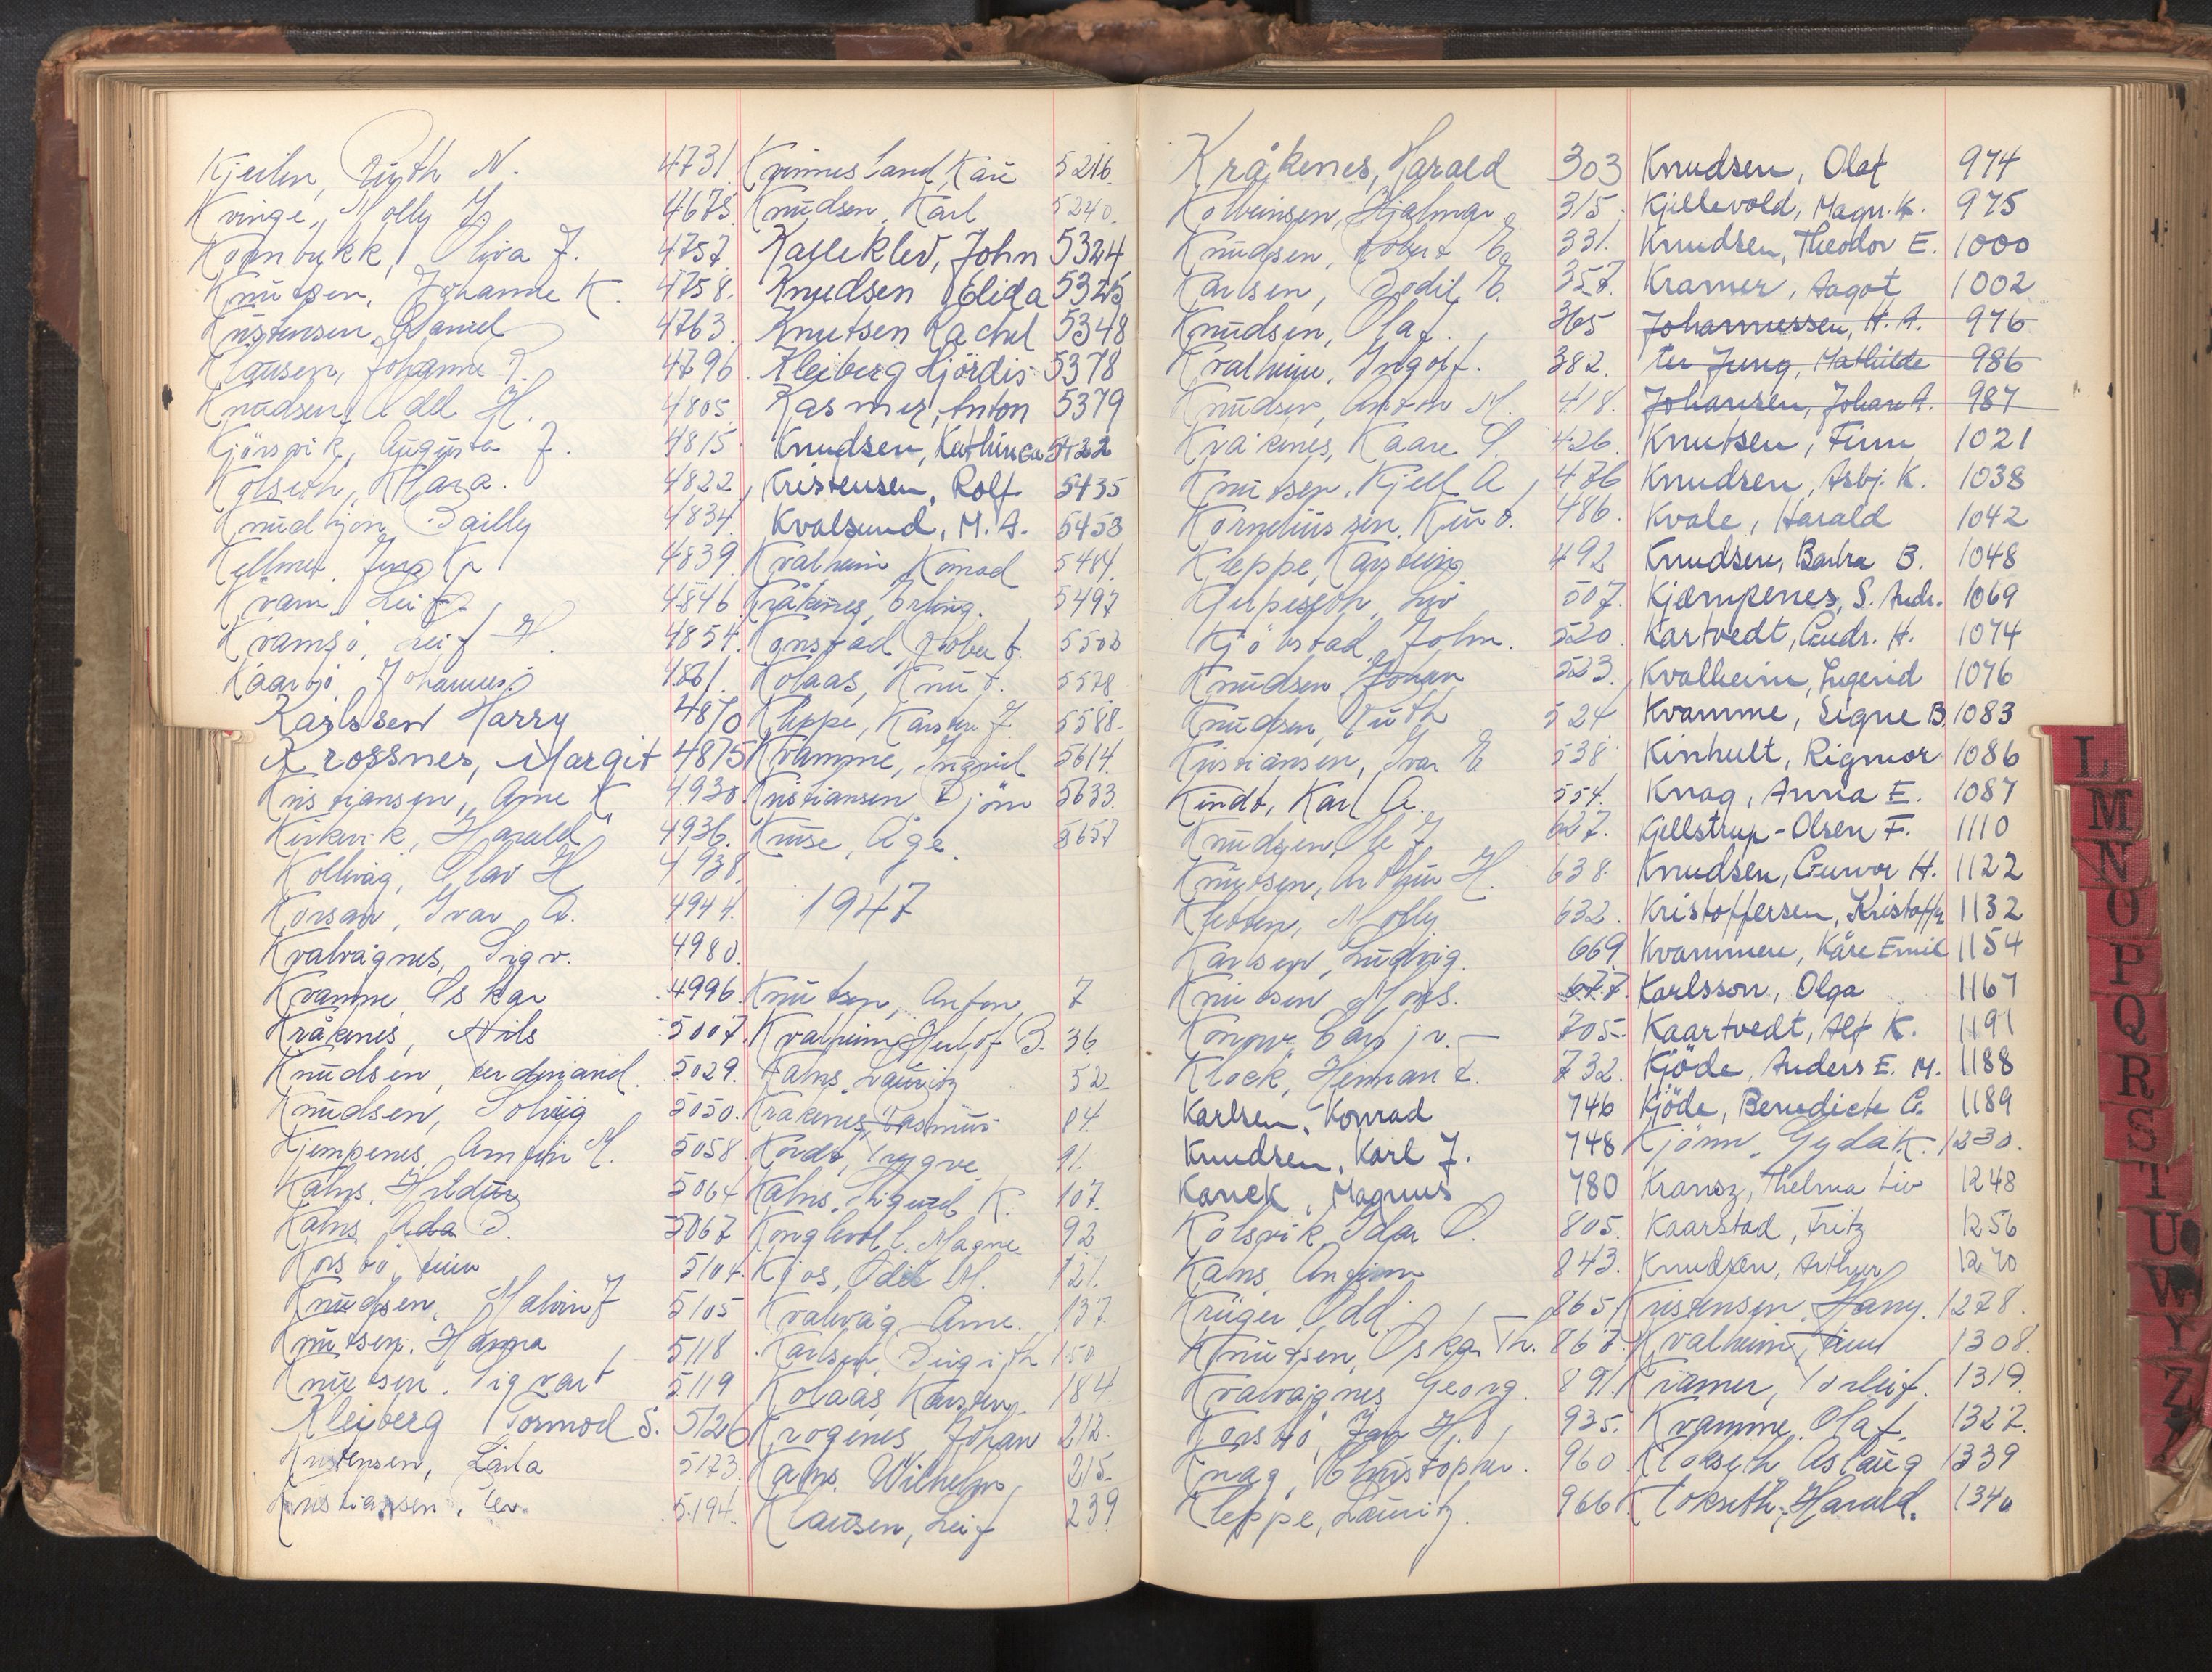 Kjeilen, Ruth N. 4731
Kvinge, Molly J. 4675
Kornbrekk, Oliva J. 4757
Knutsen, Johanne K. 4758
Kristensen, Daniel 4763
Klausen, Johanne R. 4796
Knudsen, Adel H. 4805
Kjörsvik, Augusta J. 4815
Kolseth, Klara. 4822
Bailly 4834
Jens 4839
Kvam, Leif 4846
Kvamsö, Leif H. 4854
Johannes 4861
Karlssen Harry 4870
Krossnes, Margit 4875
Kristiansen, Arne K 4930
Kirkevik, Harald 4936
Kollevåg, Olav H. 4938
Korsan, Ivar A. 4944
Kvalvågnes, Sigv. 4980
Kvamme, Oskar 4996
Kråkenes, Nils 5007
Knudsen, Ferdinand. 5029
Knudsen, Solveig 5050
Kjempenes Arnfin M. 5058
Kahrs, Hildur 5064
Kahrs Ada B. 5067
Korsbö, Finn 5104
Knudsen, Malvin J 5105
Knutsen, Hanna 5118
Knutsen, Sigvart 5119
Kleiberg Tormod S. 5126
Kristensen, Laila 5173
Kristiansen, 5194
Kvinnesland, Kari 5216
Knudsen, Karl 5240
Kalleklev, John 5324
Knudsen Elida 5325
Knutsen Rachel 5348
Kleiberg Hjördis 5378
Kasmer, Anton 5379
Knudsen, Kathinca 5422
Kristensen, Rolf 5435
Kvalsund, M. A. 5453
Kvalheim Konrad 5484
Kråkenes, Erling. 5497
Konstad Robert. 5503
Kolaas, Knut. 5578
Kleppe, Karsten J. 5588
Kvamme, Ingvid 5614
Kristiansen Björn 5633
Kruse, Åge. 5657
1947
Knutsen, Anton 7
Kvalheim Herlof B. 36
Kahrs, Lauritz 52
Kråkenes, Rasmus 84
Kordt, Trygve 91
Kahrs, Sigurd K. 107
Konglevoll, Magne 92
Kjos, Odd M. 121
Kvalvåg Arne. 137
Karlsen, Birgith 150
Kolaas, Karsten 184
Krogenes, Johan 212
Kahrs, Wilhelm 215
Klausen, Leif 239
Kråkenes, Harald 303
Kolbeinsen, Hjalmar 315
Knudsen, Robert E. 331
Karlsen, Bodil E. 357
Knudsen, Olaf. 365
Kvalheim, Ingolf. 382
Knudsen, Anton M. 418
Kråkenes, Kaare S. 426
Knutsen, Kjell A 476
Korneliussen, Knut. 486
Kleppe, Karstein 492
Liv 507
Kjöbstad, John. 520
Knudsen Johan 523
Knudsen, Ruth 524
Kristiansen, Ivar E 538
Kindt, Karl A. 554
Knudsen, Ole J. 627
Knutsen, Arthur H. 638
Kletten, Molly 632
Karlsen, Ludvig. 669
Knutsen Mons. 677
Konow, Carl jr. 705
Klock, Herman L. 732
Karlsen, Konrad 746
Knudsen, Karl J. 748
Kanek, Magnus 780
Kolsvik, Idar O. 805
Kahrs, Anfinn 843
Krüger Odd. 865
Knutsen, Oskar Th. 867
Kvalvågnes Georg. 891
Korsbö, Jan H. 935
Knag, Christopher. 960
Kleppe, Lauritz. 966
Knudsen, Olaf 974
Kjellevold, Magn. K. 975
Knudsen, Theodor E. 1000
Kramer, Aagot 1002
Johannessen, H. A. 976
ter Jung, Mathilde 986
Johansen, Johan A. 987
Knutsen, Finn 1021
Knudsen, Asbj. K. 1038
Kvale, Harald 1042
Knudsen, Barbra B. 1048
Kjæmpenes, S. Andr. 1069
Kartvedt, Gudr. H. 1074
Kvalheim, Ingerid 1076
Kvamme, Signe B. 1083
Kinhult, Rigmor 1086
Knag, Anna E. 1087
Kjellstrup-Olsen F. 1110
Knudsen, Gunvor H. 1122
Kristoffersen, Kristoffer 1132
Kvammen, Kåre Emil 1154
Karlsson, Olga 1167
Kaartvedt, Alf K. 1191
Kjöde, Anders E. M. 1188
Kjöde, Benedicte G. 1189
Kjönn, Gyda K. 1230.
Kransz, Thelma Liv 1248
Kaarstad, Fritz 1256
Knudsen, Arthur 1270
Kristensen, Harry. 1278.
Kvalheim, Finn 1308.
Kramer, Torleif. 1319.
Kvamme, Olaf. 1322.
Klokseth Aslaug 1339
Klokseth, Harald. 1340
L
M
N
O
P
Q
R
S
T
U
W
Y
Z